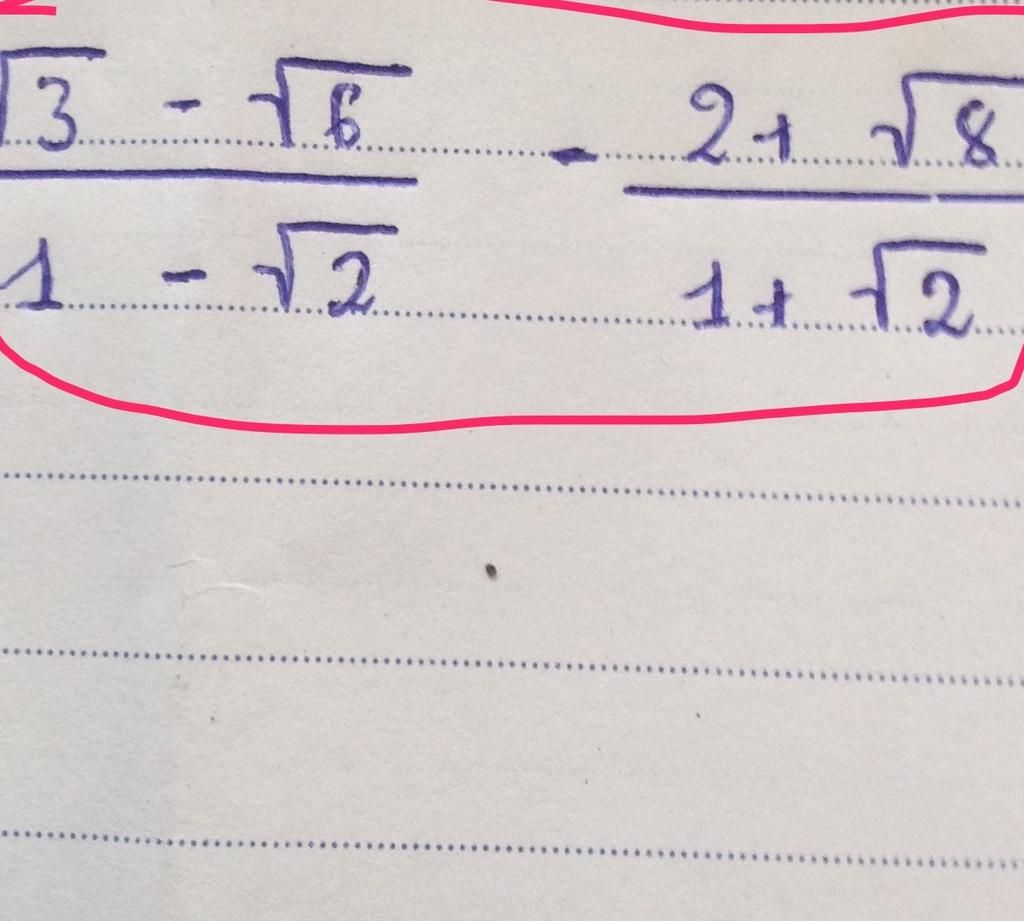 √3 - √6 / 1 - √2 - 2 + √8 / 1 + √2